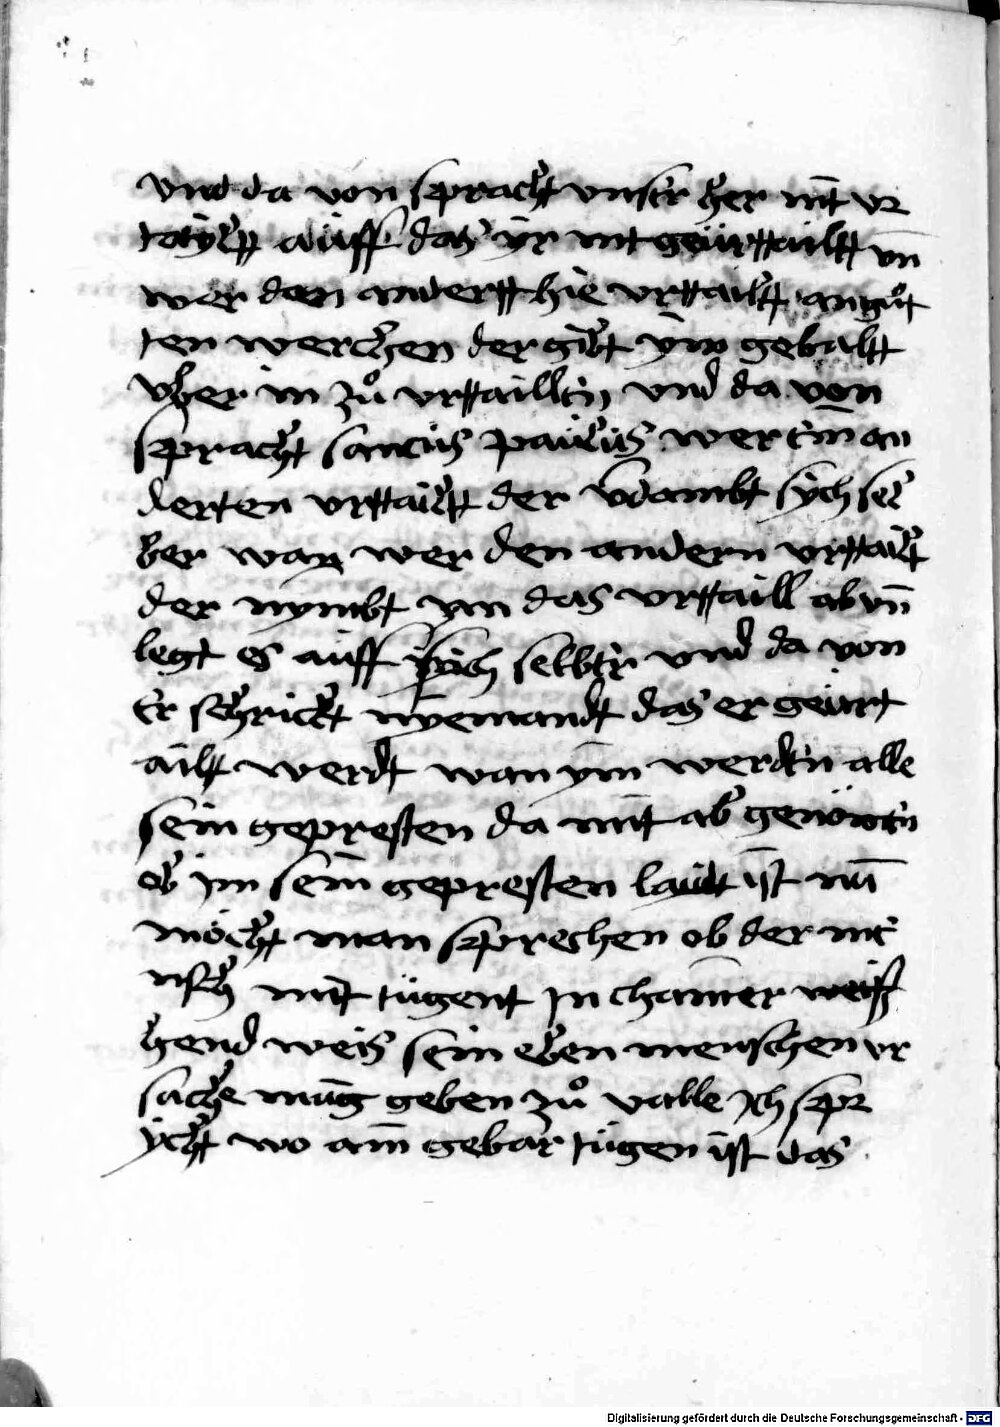 vnd da von spracht vnser her nit vr
taÿlt aüff das ir nit geürttailt vn̄
wer den andertt hie vrttailt an güt
ten werchen der gibt ym gebalt
vber in zů vrttaillen vnd da von
spracht sanctüs paülüs wer ein̄ an
derten vrttailt der v̄dambt sich sel
ber wan wer den andern vrttailt
der nymbt ym das vrttaill ab vn̄
legt es aüff sich selber vnd da von
Er schrickt nyemandt das er geürt
ailt werdt wan ym werden alle
sein gepresten da mit ab genomen
ob im sein gepresten laidt ist nū
möcht man sprechen ob der me
nsch mit tügent in chainer
hend weis sein eben menschen vr
sache müg geben zů valle Ich spr
icht wo ain gebar tügen ist das